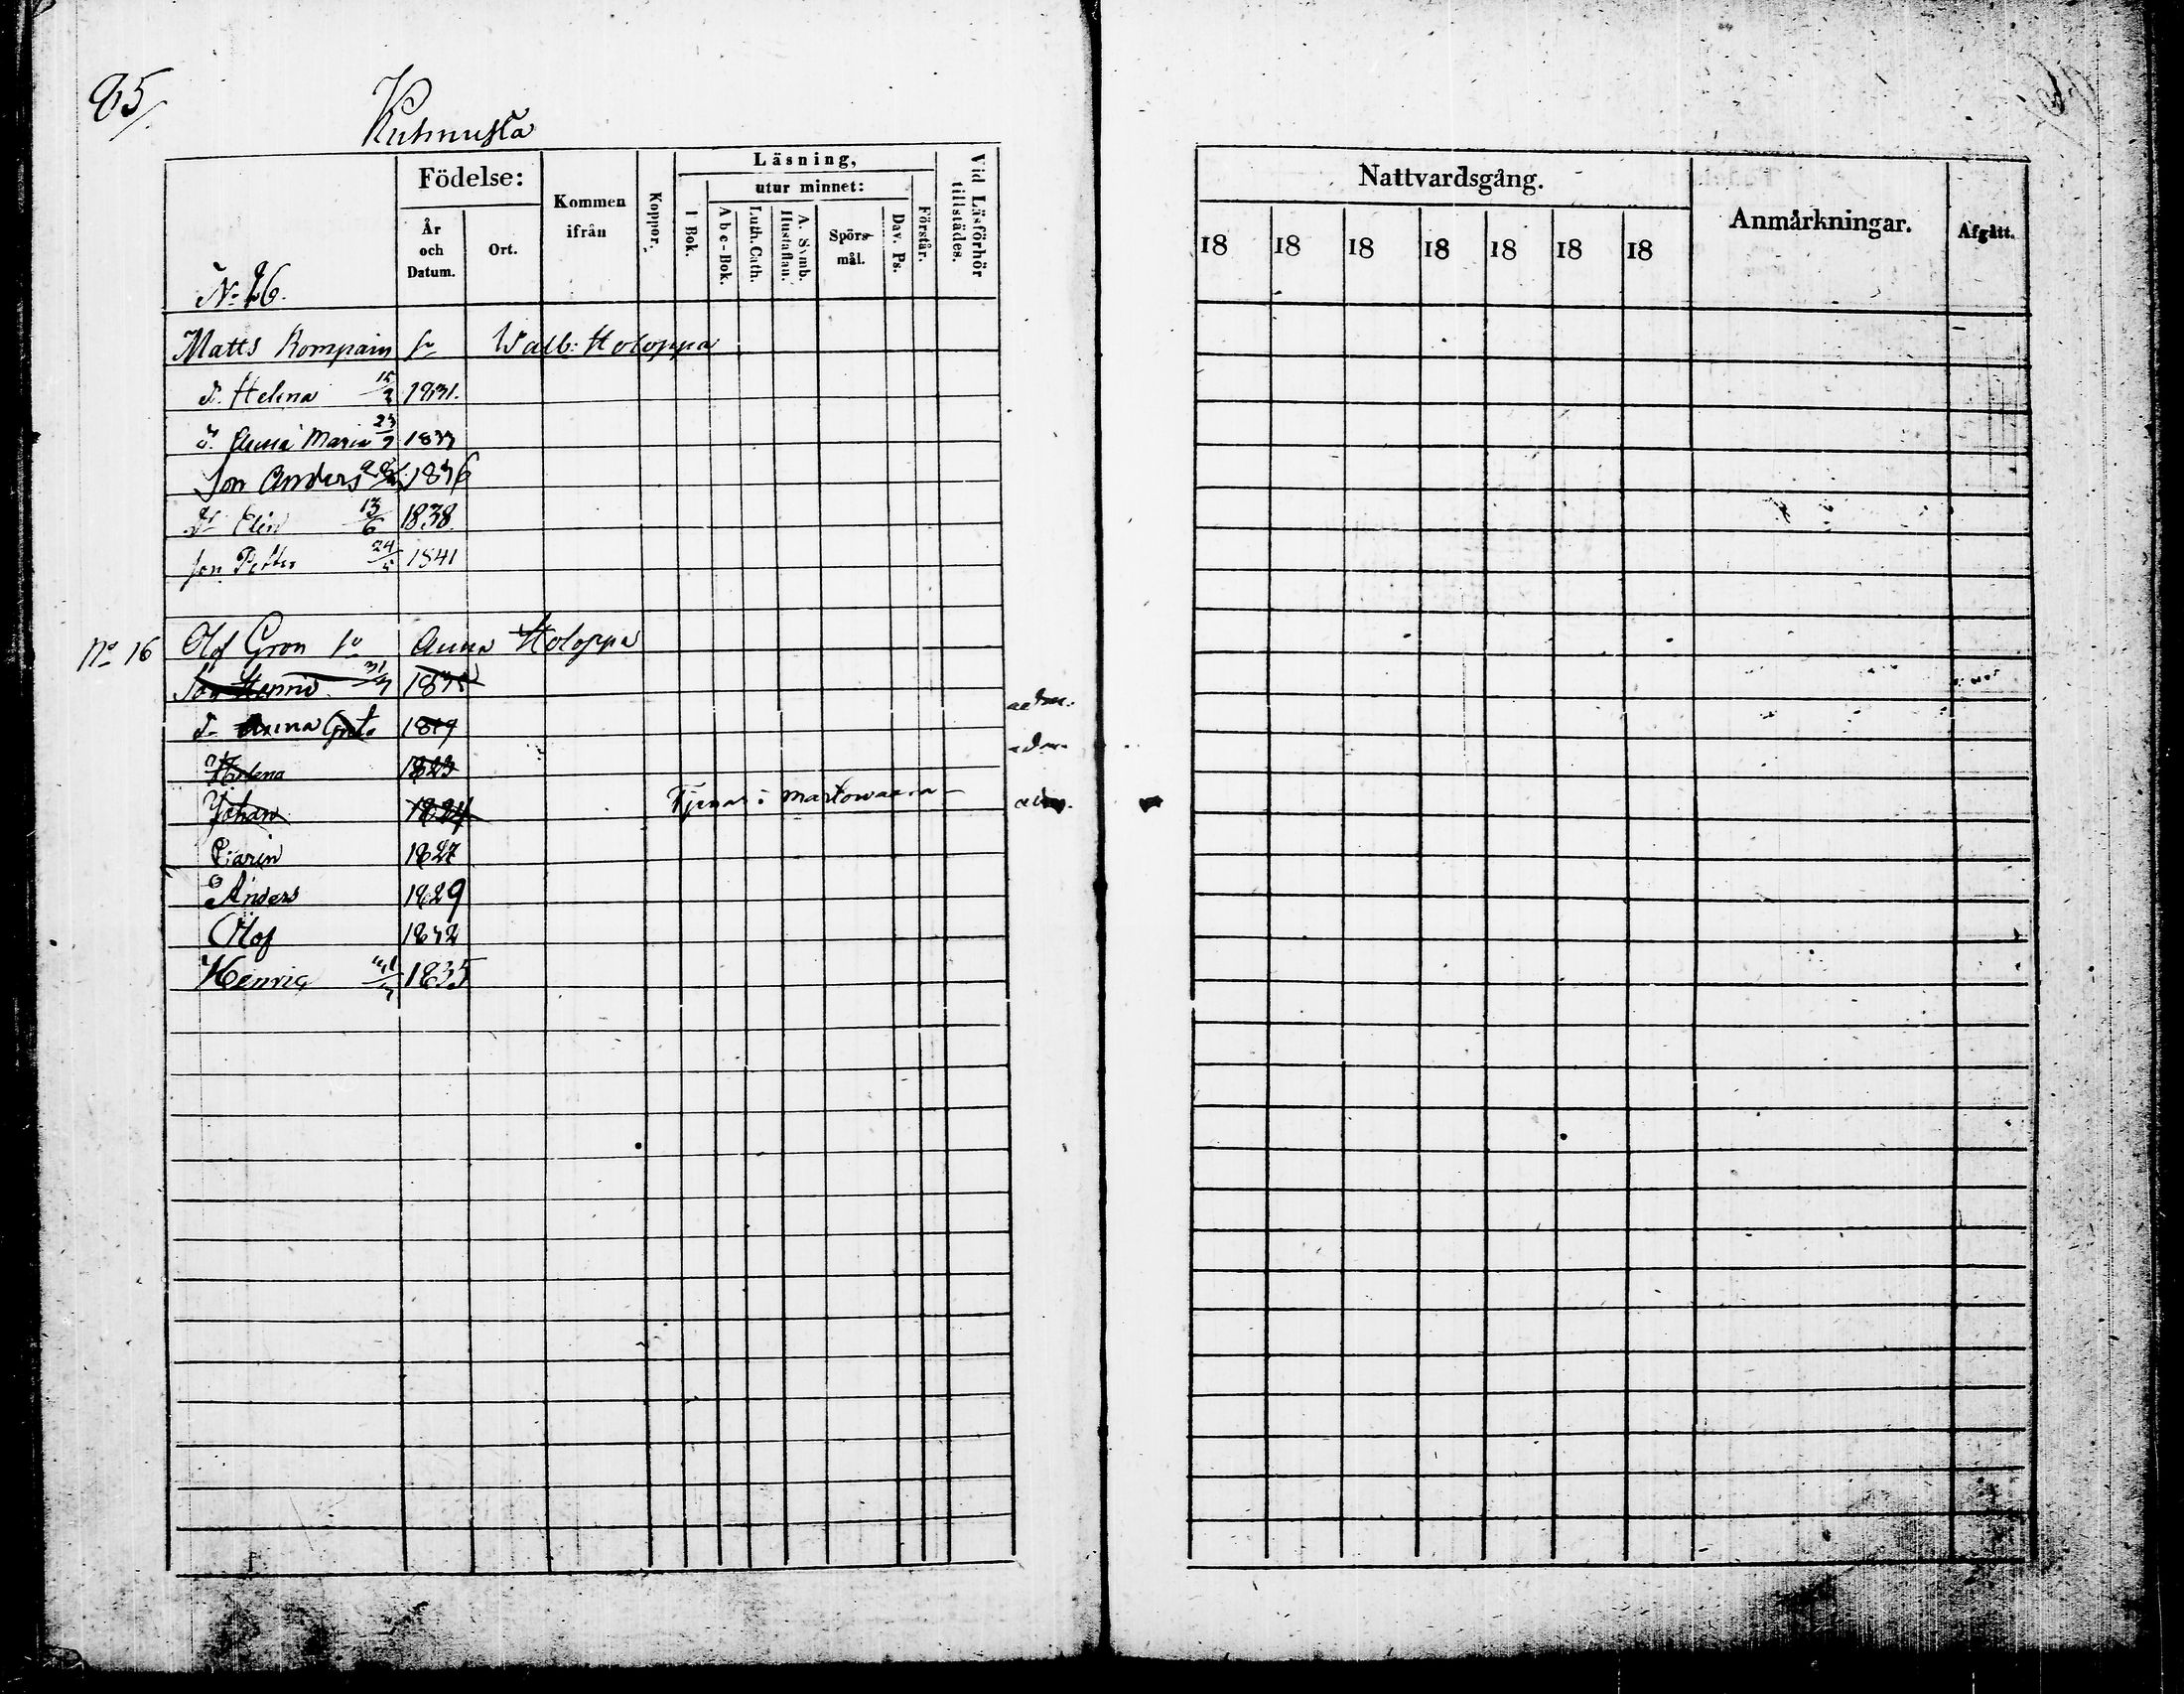 85/.
Kuhmusta
Födelse:
Kommen ifrån
Koppor.
Läsning,
utur minnet:
Vid Läsförhör tillstädes.
År och Datum.
Ort.
I Bok.
Abc-Bok.
Luth. Cath.
A. Symb. Hustaflan.
Spörsmål.
Dav. Ps.
Förstår.
Nattvardsgång.
Anmärkningar.
Afgått.
18 18 18 18 18 18 18
No 16.
Matts Rompain hu Walb: Holoppa
d. Helena 1831.
d. Anna Maria 23/9 1833
Son Anders 1836
d. Elin 13/6 1838
son Petter 24/5 1841
No 16 Olof Gron hu Anna Holoppa
Son Henric 31/7 1835
d. Anna Grt. 1819
Helena 1823
Johan 1824 Tjenar i Martowaara
Carin 1827
Anders 1829
Olof 1832
Henric 31/7 1835
adm.
adm.
adm.